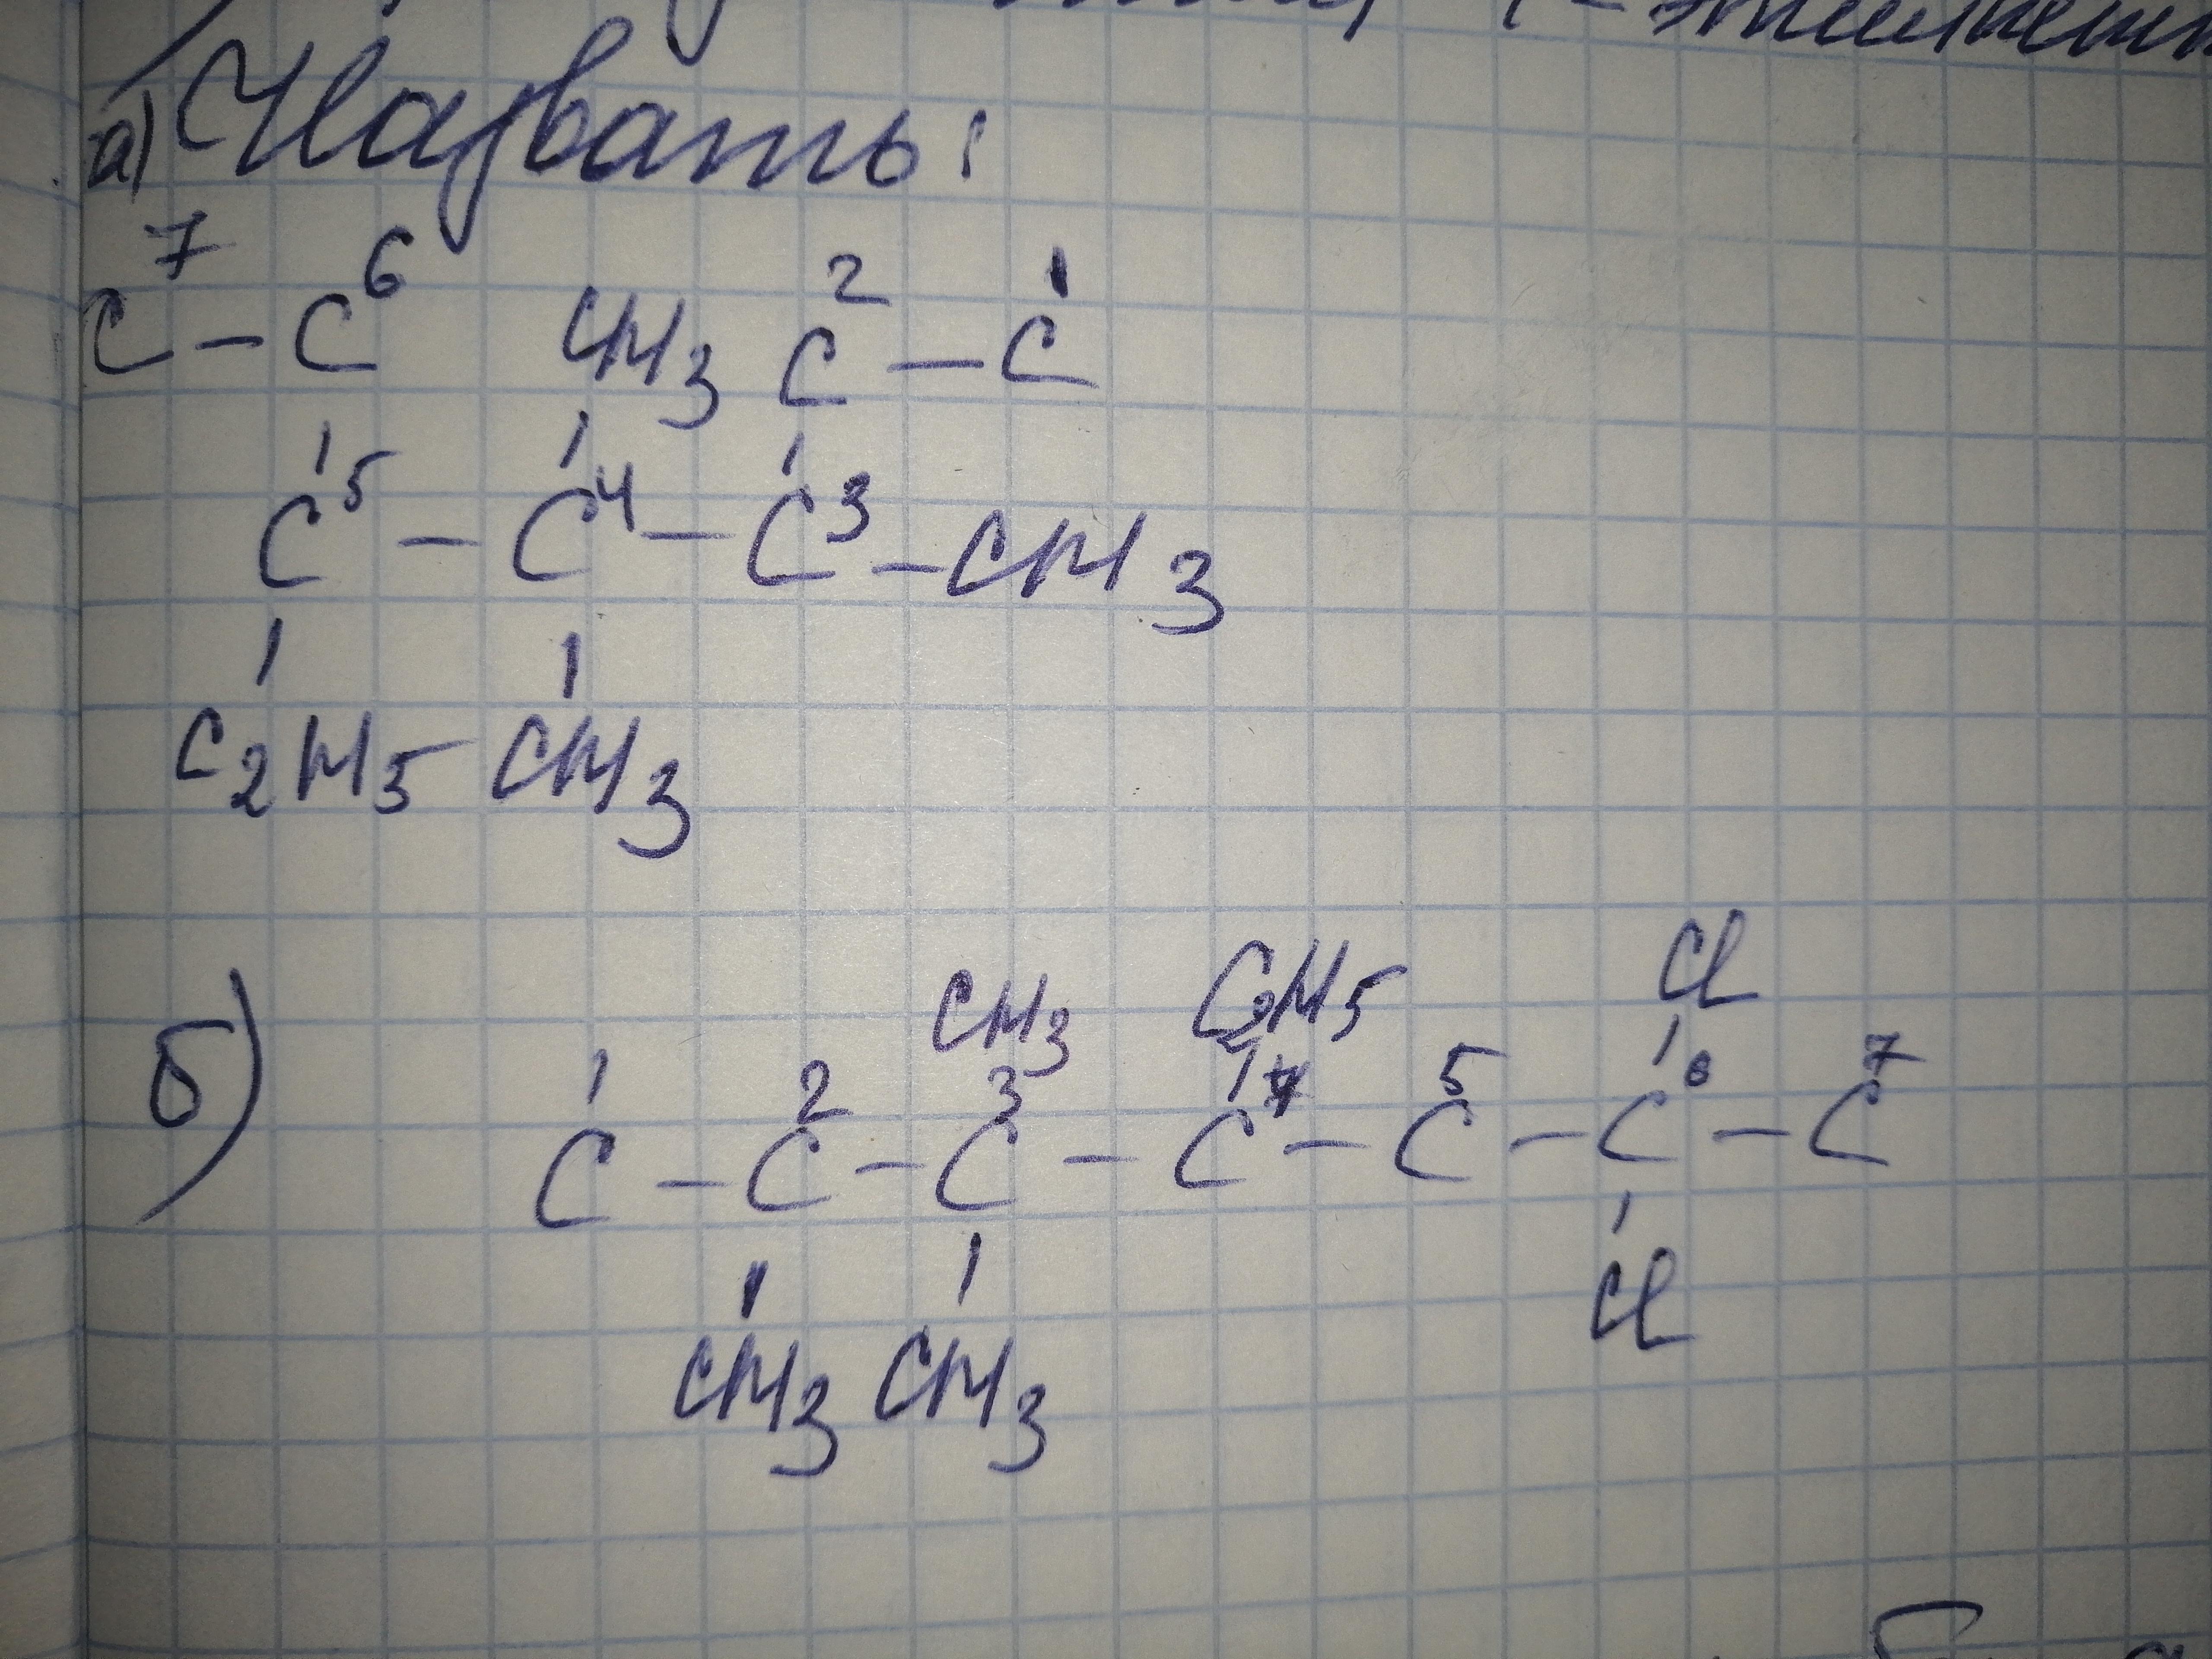 а) Назвать:
C⁷ – C⁶ CH₃ C² – C¹
C⁵ – C⁴ – C³ – CH₃
C₂H₅ CH₃
б)
CH₃ C₂H₅ Cl
C¹ – C² – C³ – C⁴ – C⁵ – C⁶ – C⁷
CH₃ CH₃ Cl